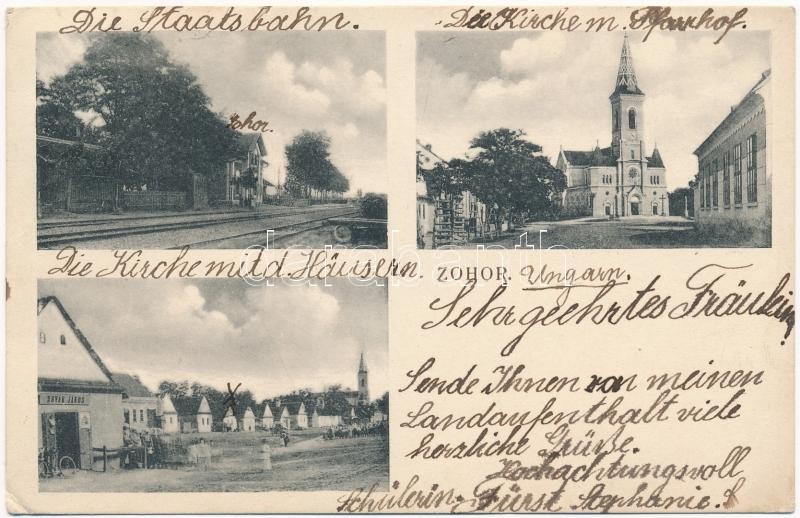 Die Staatsbahn.
Die Kirche m. Pfarrhof.
Zohor.
Die Kirche mit d. Häusern.
ZOHOR. Ungarn.
Sehr geehrtes Fräulein!
Sende Ihnen von meinen
Landaufenthalt viele
herzliche Grüße.
Hochachtungsvoll
Schülerin. Fürst Stephanie.
X
darabanth